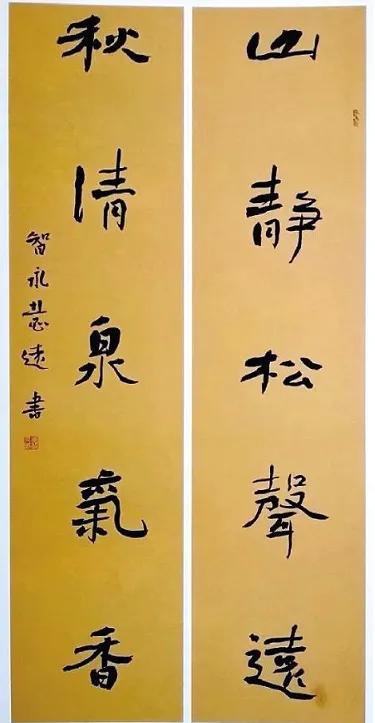 山静松聲遠
秋清泉氣香
智永書